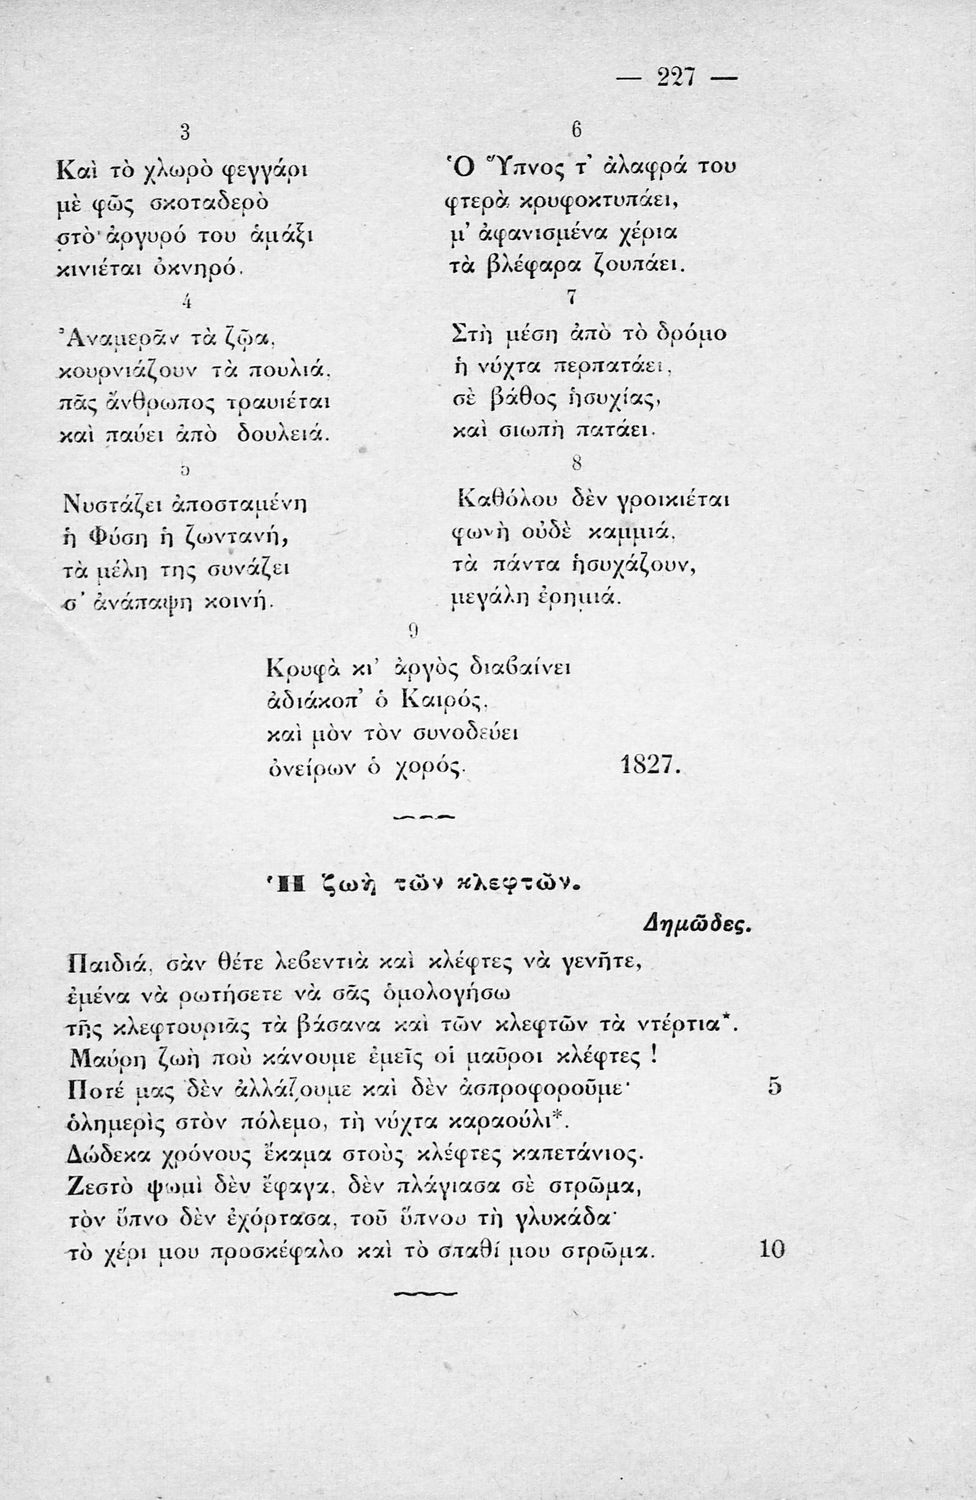 — 227 —
3
Καὶ τὸ χλωρὸ φεγγάρι
μὲ φῶς σκοταδερὸ
στὸ ἀργυρό του ἁμάξι
κινιέται ὀκνηρό.
4
Ἀναμερᾶν τὰ ζῷα,
κουρνιάζουν τὰ πουλιά,
πᾶς ἄνθρωπος τραυιέται
καὶ παύει ἀπὸ δουλειά.
5
Νυστάζει ἀποσταμένη
ἡ Φύση ἡ ζωντανή,
τὰ μέλη της συνάζει
σ' ἀνάπαψη κοινή.
6
Ὁ Ὕπνος τ' ἀλαφρά του
φτερὰ κρυφοκτυπάει,
μ' ἀφανισμένα χέρια
τὰ βλέφαρα ζουπάει.
7
Στὴ μέση ἀπὸ τὸ δρόμο
ἡ νύχτα περπατάει,
σὲ βάθος ἡσυχίας,
καὶ σιωπὴ πατάει.
8
Καθόλου δὲν γροικιέται
φωνὴ οὐδὲ καμμιά,
τὰ πάντα ἡσυχάζουν,
μεγάλη ἐρημιά.
9
Κρυφὰ κι' ἀργὸς διαβαίνει
ἀδιάκοπ' ὁ Καιρός,
καὶ μὸν τὸν συνοδεύει
ὀνείρων ὁ χορός. 1827.
Ἡ ζωὴ τῶν κλεφτῶν.
Δημῶδες.
Παιδιά, σὰν θέτε λεβεντιὰ καὶ κλέφτες νὰ γενῆτε,
ἐμένα νὰ ρωτήσετε νὰ σᾶς ὁμολογήσω
τῆς κλεφτουριᾶς τὰ βάσανα καὶ τῶν κλεφτῶν τὰ ντέρτια*.
Μαύρη ζωὴ ποὺ κάνουμε ἐμεῖς οἱ μαῦροι κλέφτες !
Ποτέ μας δὲν ἀλλάζουμε καὶ δὲν ἀσπροφοροῦμε· 5
ὁλημερὶς στὸν πόλεμο, τὴ νύχτα καραούλι*.
Δώδεκα χρόνους ἔκαμα στοὺς κλέφτες καπετάνιος.
Ζεστὸ ψωμὶ δὲν ἔφαγα, δὲν πλάγιασα σὲ στρῶμα,
τὸν ὕπνο δὲν ἐχόρτασα, τοῦ ὕπνου τὴ γλυκάδα·
τὸ χέρι μου προσκέφαλο καὶ τὸ σπαθί μου στρῶμα. 10